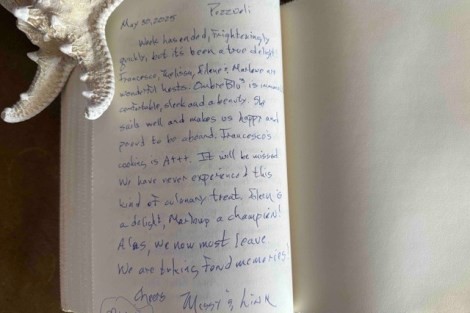 May 30, 2025 Pozzuoli
Week has ended, frighteningly
quickly, but it's been a true delight!
Francesco, Melissa, Eilene & Marlowe are
wonderful hosts. OmbreBlu is immense
comfortable, sleek and a beauty. She
sails well and makes us happy and
proud to be aboard. Francesco's
cooking is A+++. It will be missed
We have never experienced this
kind of culinary treat. is
a delight, Marlowe a champion!
Alas, we now most leave.
We are taking fond memories!
Cheers
Missy & Link